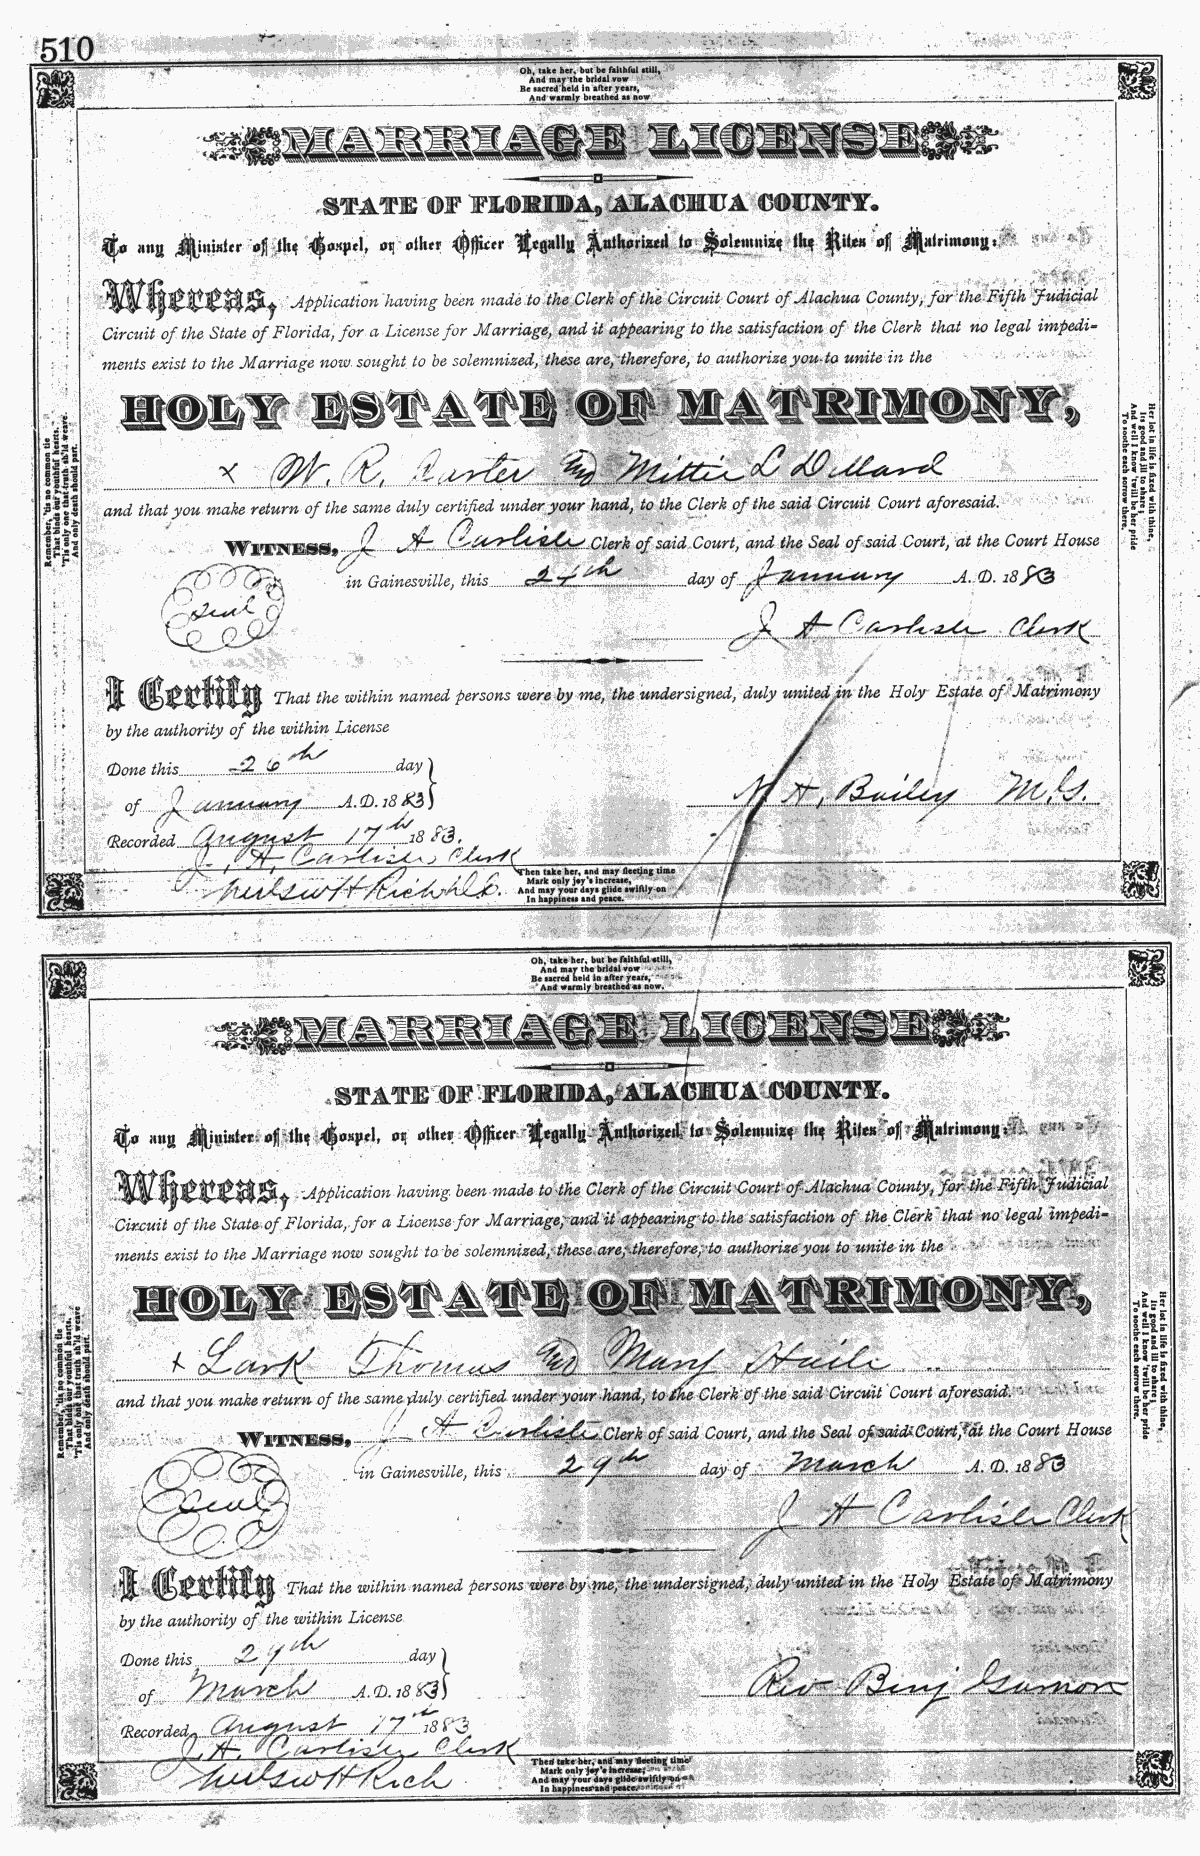 510
Oh, take her, but be faithful still,
And may the bridal vow
Be sacred held in after years,
And warmly breathed as now
MARRIAGE LICENSE
STATE OF FLORIDA, ALACHUA COUNTY.
To any Minister of the Gospel, or other Officer Legally Authorized to Solemnize the Rites of Matrimony:
Whereas, Application having been made to the Clerk of the Circuit Court of Alachua County, for the Fifth Judicial
Circuit of the State of Florida, for a License for Marriage, and it appearing to the satisfaction of the Clerk that no legal impedi-
ments exist to the Marriage now sought to be solemnized, these are, therefore, to authorize you to unite in the
HOLY ESTATE OF MATRIMONY,
x W. R. Carter and Mittie L Dillard
and that you make return of the same duly certified under your hand, to the Clerk of the said Circuit Court aforesaid.
WITNESS, J A Carlisle Clerk of said Court, and the Seal of said Court, at the Court House
in Gainesville, this 24th day of January A. D. 1883
Seal
J A Carlisle Clerk
I Certify That the within named persons were by me, the undersigned, duly united in the Holy Estate of Matrimony
by the authority of the within License
Done this 26th day
of January A. D. 1883
N. H. Bailey M.G.
Recorded August 17th 1883.
J. A. Carlisle, Clerk
D.C.
Remember, 'tis no common tie
That binds our youthful hearts,
'Tis only one that truth sh'ld weave
And only death should part.
Her lot in life is fixed with thine,
Its good and ill to share;
And well I know 'twill be her pride
To soothe each sorrow there.
Then take her, and may fleeting time
Mark only joy's increase,
And may your days glide swiftly on
In happiness and peace.
Oh, take her, but be faithful still,
And may the bridal vow
Be sacred held in after years,
And warmly breathed as now.
MARRIAGE LICENSE
STATE OF FLORIDA, ALACHUA COUNTY.
To any Minister of the Gospel, or other Officer Legally Authorized to Solemnize the Rites of Matrimony:
Whereas, Application having been made to the Clerk of the Circuit Court of Alachua County, for the Fifth Judicial
Circuit of the State of Florida, for a License for Marriage, and it appearing to the satisfaction of the Clerk that no legal impedi-
ments exist to the Marriage now sought to be solemnized, these are, therefore, to authorize you to unite in the
HOLY ESTATE OF MATRIMONY,
x Lark Thomas and Mary Haile
and that you make return of the same duly certified under your hand, to the Clerk of the said Circuit Court aforesaid.
WITNESS, J A Carlisle Clerk of said Court, and the Seal of said Court, at the Court House
in Gainesville, this 29th day of March A. D. 1883
Seal
J A Carlisle Clerk
I Certify That the within named persons were by me, the undersigned, duly united in the Holy Estate of Matrimony
by the authority of the within License
Done this 29th day
of March A. D. 1883
Rev Benj
Recorded August 17th 1883
J. A. Carlisle Clerk
Remember, 'tis no common tie
That binds our youthful hearts,
'Tis only one that truth sh'ld weave
And only death should part.
Her lot in life is fixed with thine,
Its good and ill to share;
And well I know 'twill be her pride
To soothe each sorrow there.
Then take her, and may fleeting time
Mark only joy's increase,
And may your days glide swiftly on
In happiness and peace.